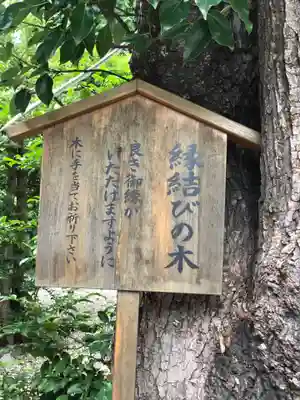 縁結びの木
良き御縁が
いただけますように
木に手を当てお祈り下さい